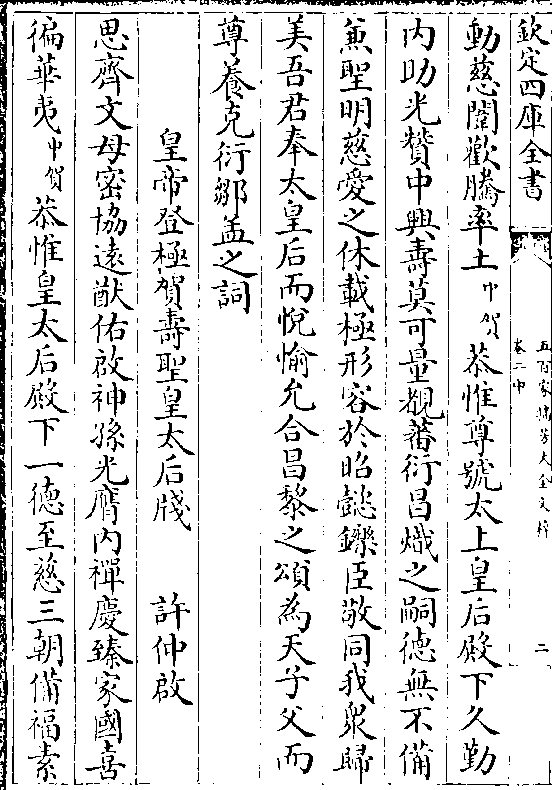 欽定四庫全書
五百家播芳大全文粹
卷二中
二
動慈闈歡騰率土中賀恭惟尊號太上皇后殿下久勤
内助光贊中興壽莫可量覩蕃衍昌熾之嗣德無不備
兼聖明慈愛之休載極形容於昭懿鑠臣敬同我衆歸
美吾君奉太皇后而悅愉允合昌黎之頌為天子父而
尊養克衍鄒孟之詞
皇帝登極賀壽聖皇太后牋 許仲啟
思齊文母密協遠猷佑啟神孫光膺内禪慶臻家國喜
徧華夷中賀恭惟皇太后殿下一德至慈三朝備福素